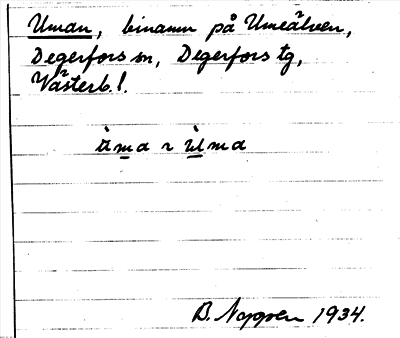 Uman, binamn på Umeälven,
Degerfors sn, Degerfors tg,
Västerb. l.
ùma ~ ùlma
B. Nygren 1934.